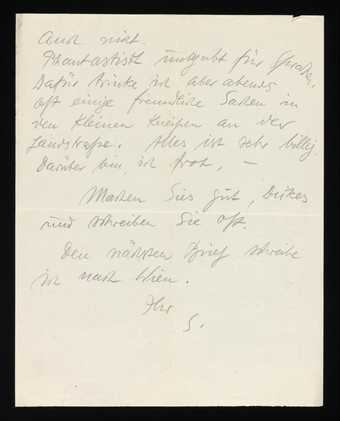 Auch nicht.
Phantastisch ungesund für
Dafür trinke ich aber abends
oft einige freundliche Sachen in
den kleinen Kneipen an der
Landstraße. Alles ist sehr billig.
Darüber bin ich froh, –
Machen Sies gut,
und schreiben Sie oft.
Den nächsten Brief schreibe
ich nach Wien.
Ihr
S.